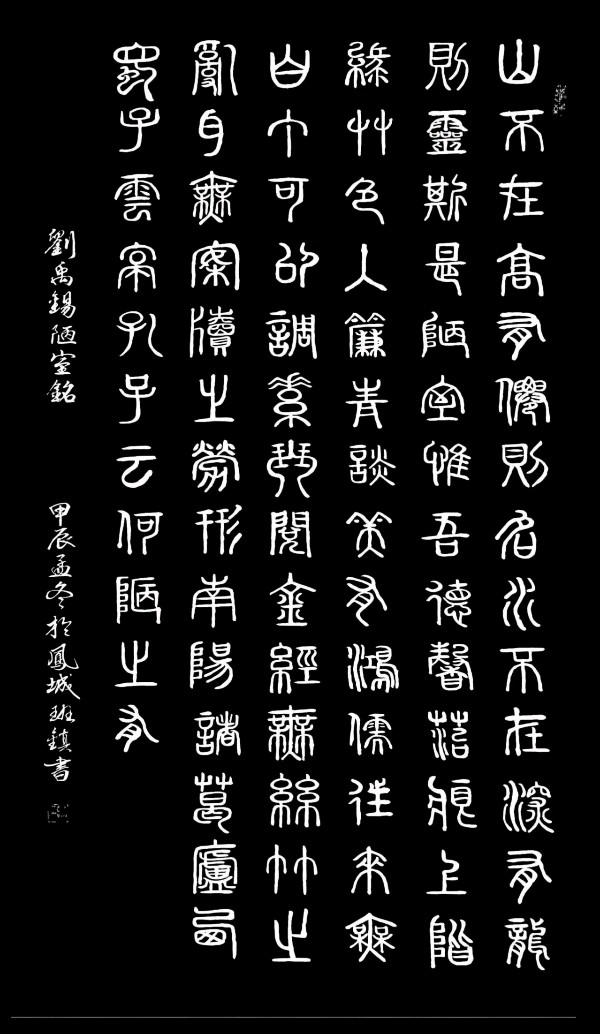 山不在高有僊則名水不在深有龍
則靈斯是陋室惟吾德馨苔痕上階
綠艸色入簾青談笑有鴻儒往來無
白丁可以調素琴閱金經無絲竹之
亂耳無案牘之勞形南陽諸葛廬西
蜀子雲亭孔子云何陋之有
劉禹錫陋室銘 甲辰孟冬於鳳城班鎮書